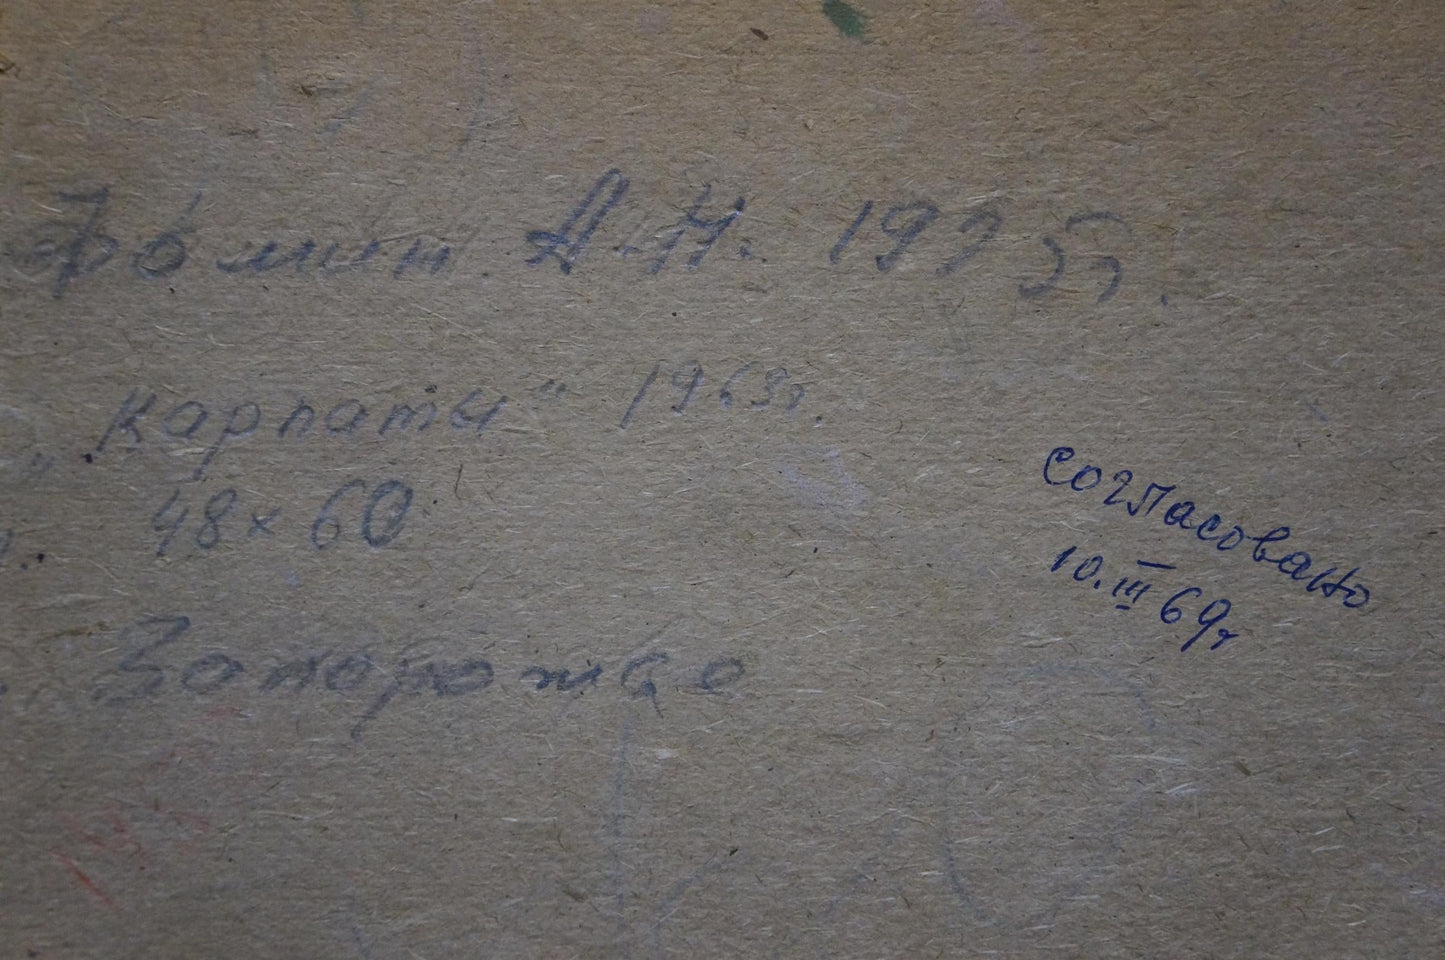 Фомин А.Н. 1925г.
"Карпаты" 1969г.
48х60
Запорожье
согласовано
10.III 69г